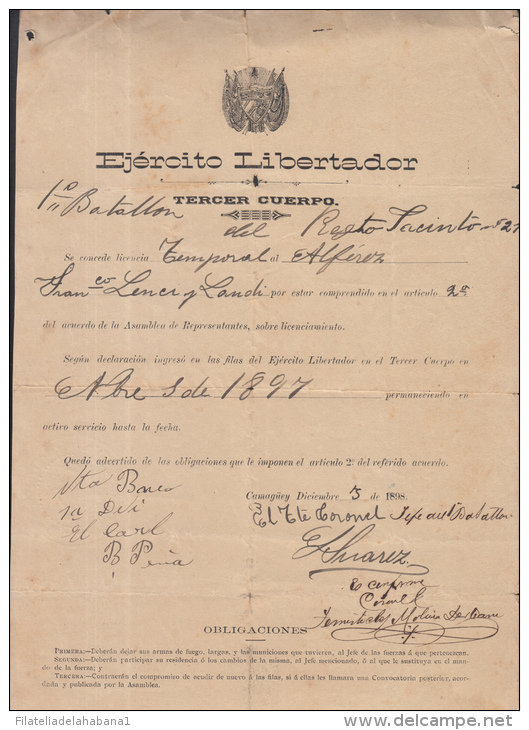 Ejército Libertador
TERCER CUERPO.
1º Batallon
del Regto Jacinto
Se concede licencia Temporal al Alférez
Franco Lence y Landi por estar comprendido en el artículo 2º
del acuerdo de la Asamblea de Representantes, sobre licenciamiento.
Según declaración ingresó en las filas del Ejército Libertador en el Tercer Cuerpo en
Nbre 3 de 1897 permaneciendo en
activo servicio hasta la fecha.
Quedó advertido de las obligaciones que le imponen el artículo 2º. del referido acuerdo.
Camagüey Diciembre 3 de 1898.
El Tte Coronel Jefe del Batallon
Suarez
Vto Bueno
B Peña
Coronel
Molina
OBLIGACIONES
PRIMERA:—Deberán dejar sus armas de fuego, largas, y las municiones que tuvieren, al Jefe de las fuerzas á que pertenezcan.
SEGUNDA:—Deberán participar su residencia ó los cambios de la misma, al Jefe mencionado, ó al que le sustituya en el man-
do de la fuerza; y
TERCERA:—Contraerán el compromiso de acudir de nuevo á las filas, si á ellas les llamara una Convocatoria posterior, acor-
dada y publicada por la Asamblea.
Filateliadelahabana1
www.delcampe.net